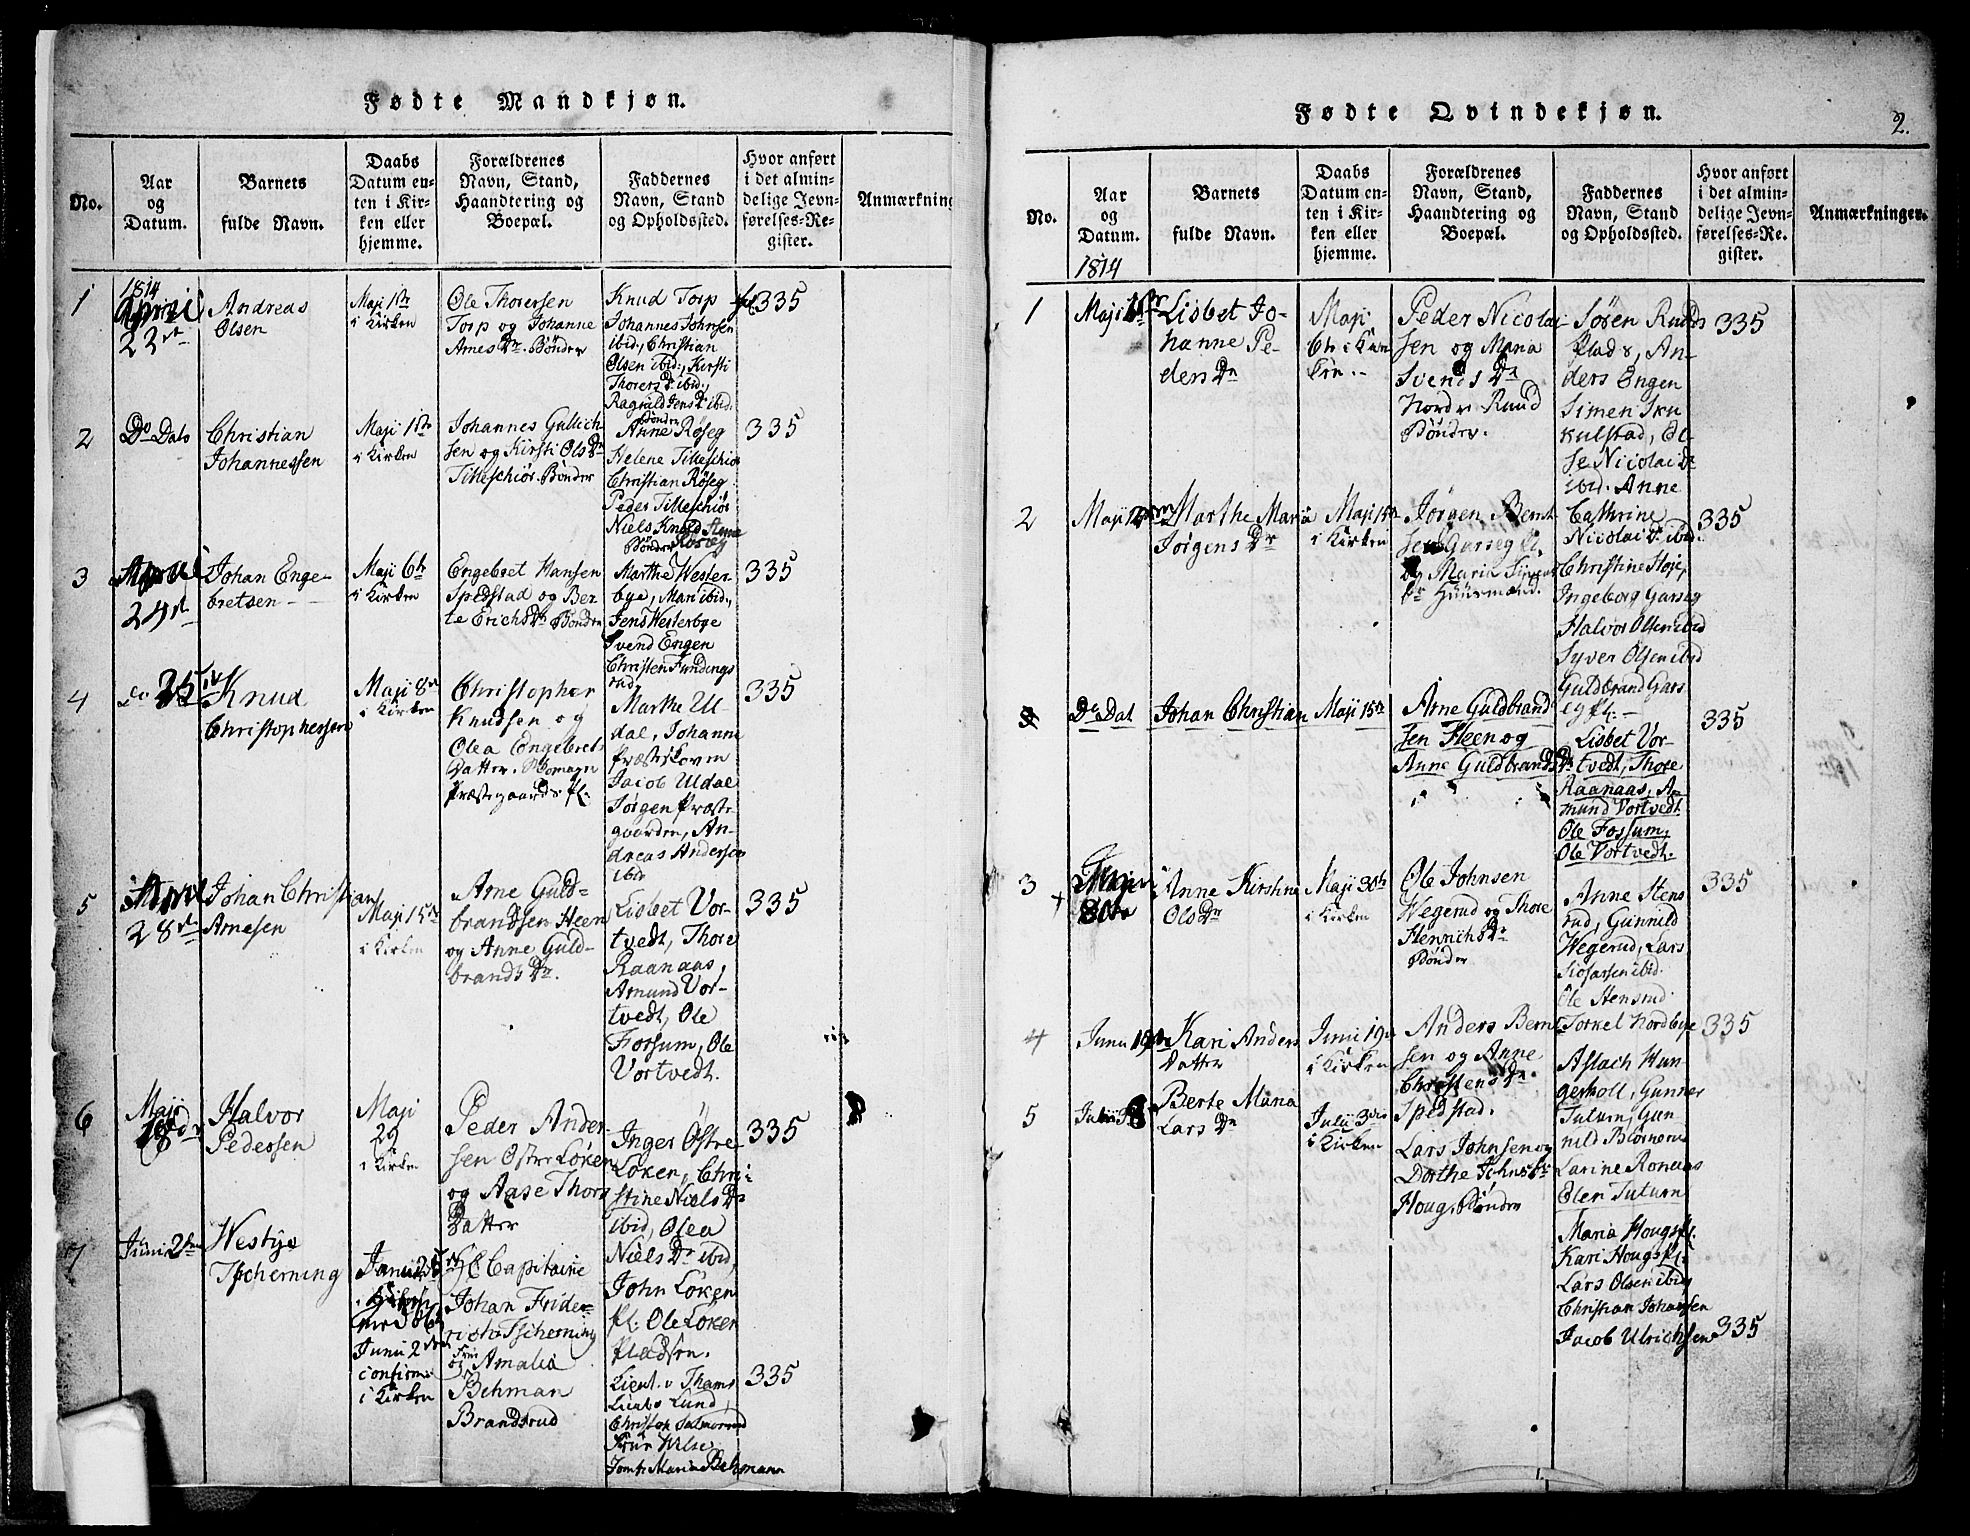 Fødte Mandkjøn.
No.
Aar
og
Datum.
Barnets
fulde Navn.
Daabs
Datum en-
ten i Kir-
ken eller
hjemme.
Forældrenes
Navn, Stand,
Haandtering og
Boepæl.
Faddernes
Navn, Stand
og Opholdssted.
Hvor anført
i det almin-
delige Jevn-
førelses-Re-
gister.
Anmærkning
1
1814
April
22de
Andreas
Olsen
Maji 1te
i Kirken
Ole Thorersen
Torp og Johanne
Arnes Dr. Bønder
Knud Torp
Johannes Johnsen
ibid., Christian
Olsen ibid., Kirsti
Thorers D ibid.,
Ragnild Jens D ibid.
Bønder
335
2
Do Dato
Christian
Johannessen
Maji 1te
i Kirken
Johannes Gullich
sen og Kirsti Ols Dr
Tilleschiör. Bønder
Anne Røseg
Helene Tilleschiör
Christian Røseg
Peder Tilleschiör
Niels
Bønder
335
3
April
24de
Johan Enge-
bretsen
Maji 6te
i Kirken
Engebret Hansen
Spedstad og Ber
te Erichs Dr Bønder
Marthe Wester
bye, Mari ibid.,
Jens Westerbye
Svend Engen
Christen Fundings
rud
335
4
do 25
Knud
Christophersen
Maji 8de
i Kirken
Christopher
Knudsen og
Olea Engebret
Datter.
Præstegaards pl.
Marthe Ul
dal, Johanne
Præsteskoven
Jacob Uldal
Jørgen Præste
gaarden, An-
dreas Andersen
ibid
335
5
April
28de
Johan Christian
Arnesen
Maji 15de
i Kirken
Arne Guld-
brandsen Heen
og Anne Guld-
brands Dr.
Lisbet Vor-
tvedt, Thore
Raanaas,
Amund Vor-
tvedt, Ole
Fossum, Ole
Vortvedt.
335
6
Maji
18de
Halvor
Pedersen
Maji
29
i Kirken
Peder Ander-
sen Østre Løken
og Aase Thors
Datter
Inger Østre
Løken, Chri-
stine Niels Dr
ibid, Olea
Niels Dr ibid,
John Løken
pl: Ole Løken
Pladsen.
335
7
Juni 2den
Westye
Tscherning
Capitaine
Johan Fride-
rich Tscherning
og Amalia
Behman
Brandsrud
Junii 2den
confirm
i Kirken
Lieut. v Thams
Lieut. Lund,
Frue Wilse
Jomfr. Maria Behmann
335
Fødte Qvindekjøn.
2.
No.
Aar
og
Datum.
Barnets
fulde Navn.
Daabs
Datum en-
ten i Kir-
ken eller
hjemme.
Forældrenes
Navn, Stand,
Haandtering og
Boepæl.
Faddernes
Navn, Stand
og Opholdssted.
Hvor anført
i det almin-
delige Jevn-
førelses-Re-
gister.
Anmærkninger.
1814
1
Maji
Lisbet Jo-
hanne Pe-
ders Dr
Maji
6te i Kir
ken.
Peder Nicolai
sen og Maria
Svends Dr
Nordre Ruud
Bønder.
Søren Ruuds
Plads, An-
ders Engen
Simen Sku
kulstad, El
se Nicolai Dr
ibid. Anne
Cathrine
Nicolai Dr ibid.
335
2
Maji
Marthe Maria
Jørgens Dr
Maji 15de
i Kirken
Jørgen Bernt
sen Garseg pl.
og Maria
Huusmænd.
Christine Høje,
Ingeborg Garseg
Halvor Olsen ibid
Syver Olsen ibid
Guldbrand Gars
eg pl:
335
3
Do Dat
Johan Christian
Maji 15de
Arne Guldbrand
sen Heen og
Anne Guldbrands Dr
Lisbet Vor-
tvedt, Thore
Raanaas, A-
mund Vortvedt
Ole Fossum,
Ole Vortvedt.
335
3
Maji
Anne Kirstine
Ols Dr
Maji 30te
i Kirken
Ole Johnsen
Wegerud og Thore
Henrichs Dr
Bønder
Anne Stens
rud, Gunnild
Wegerud, Lars
ibid.
Ole Stensrud
335
4
Junii 19de
Kari Anders
Datter
Junii 19de
i Kirken
Anders Bernt
sen og Anne
Christens Dr.
Spedstad.
Torkel Nordbye
Aslach Hun
gerholt, Gunner
Tuturn, Gun
nild Biørnerud
Larine Ronaas
Eden Tuturn
335
5
Julii
Berte Maria
Lars Dr
Julii 3die
i Kirken
Lars Johnsen og
Dorthe Johns Dr
Houg, Bønder
Maria Hougs pl.
Kari Hougs pl.
Lars Olsen ibid
Christian Johansen
Jacob Ulrichsen
335